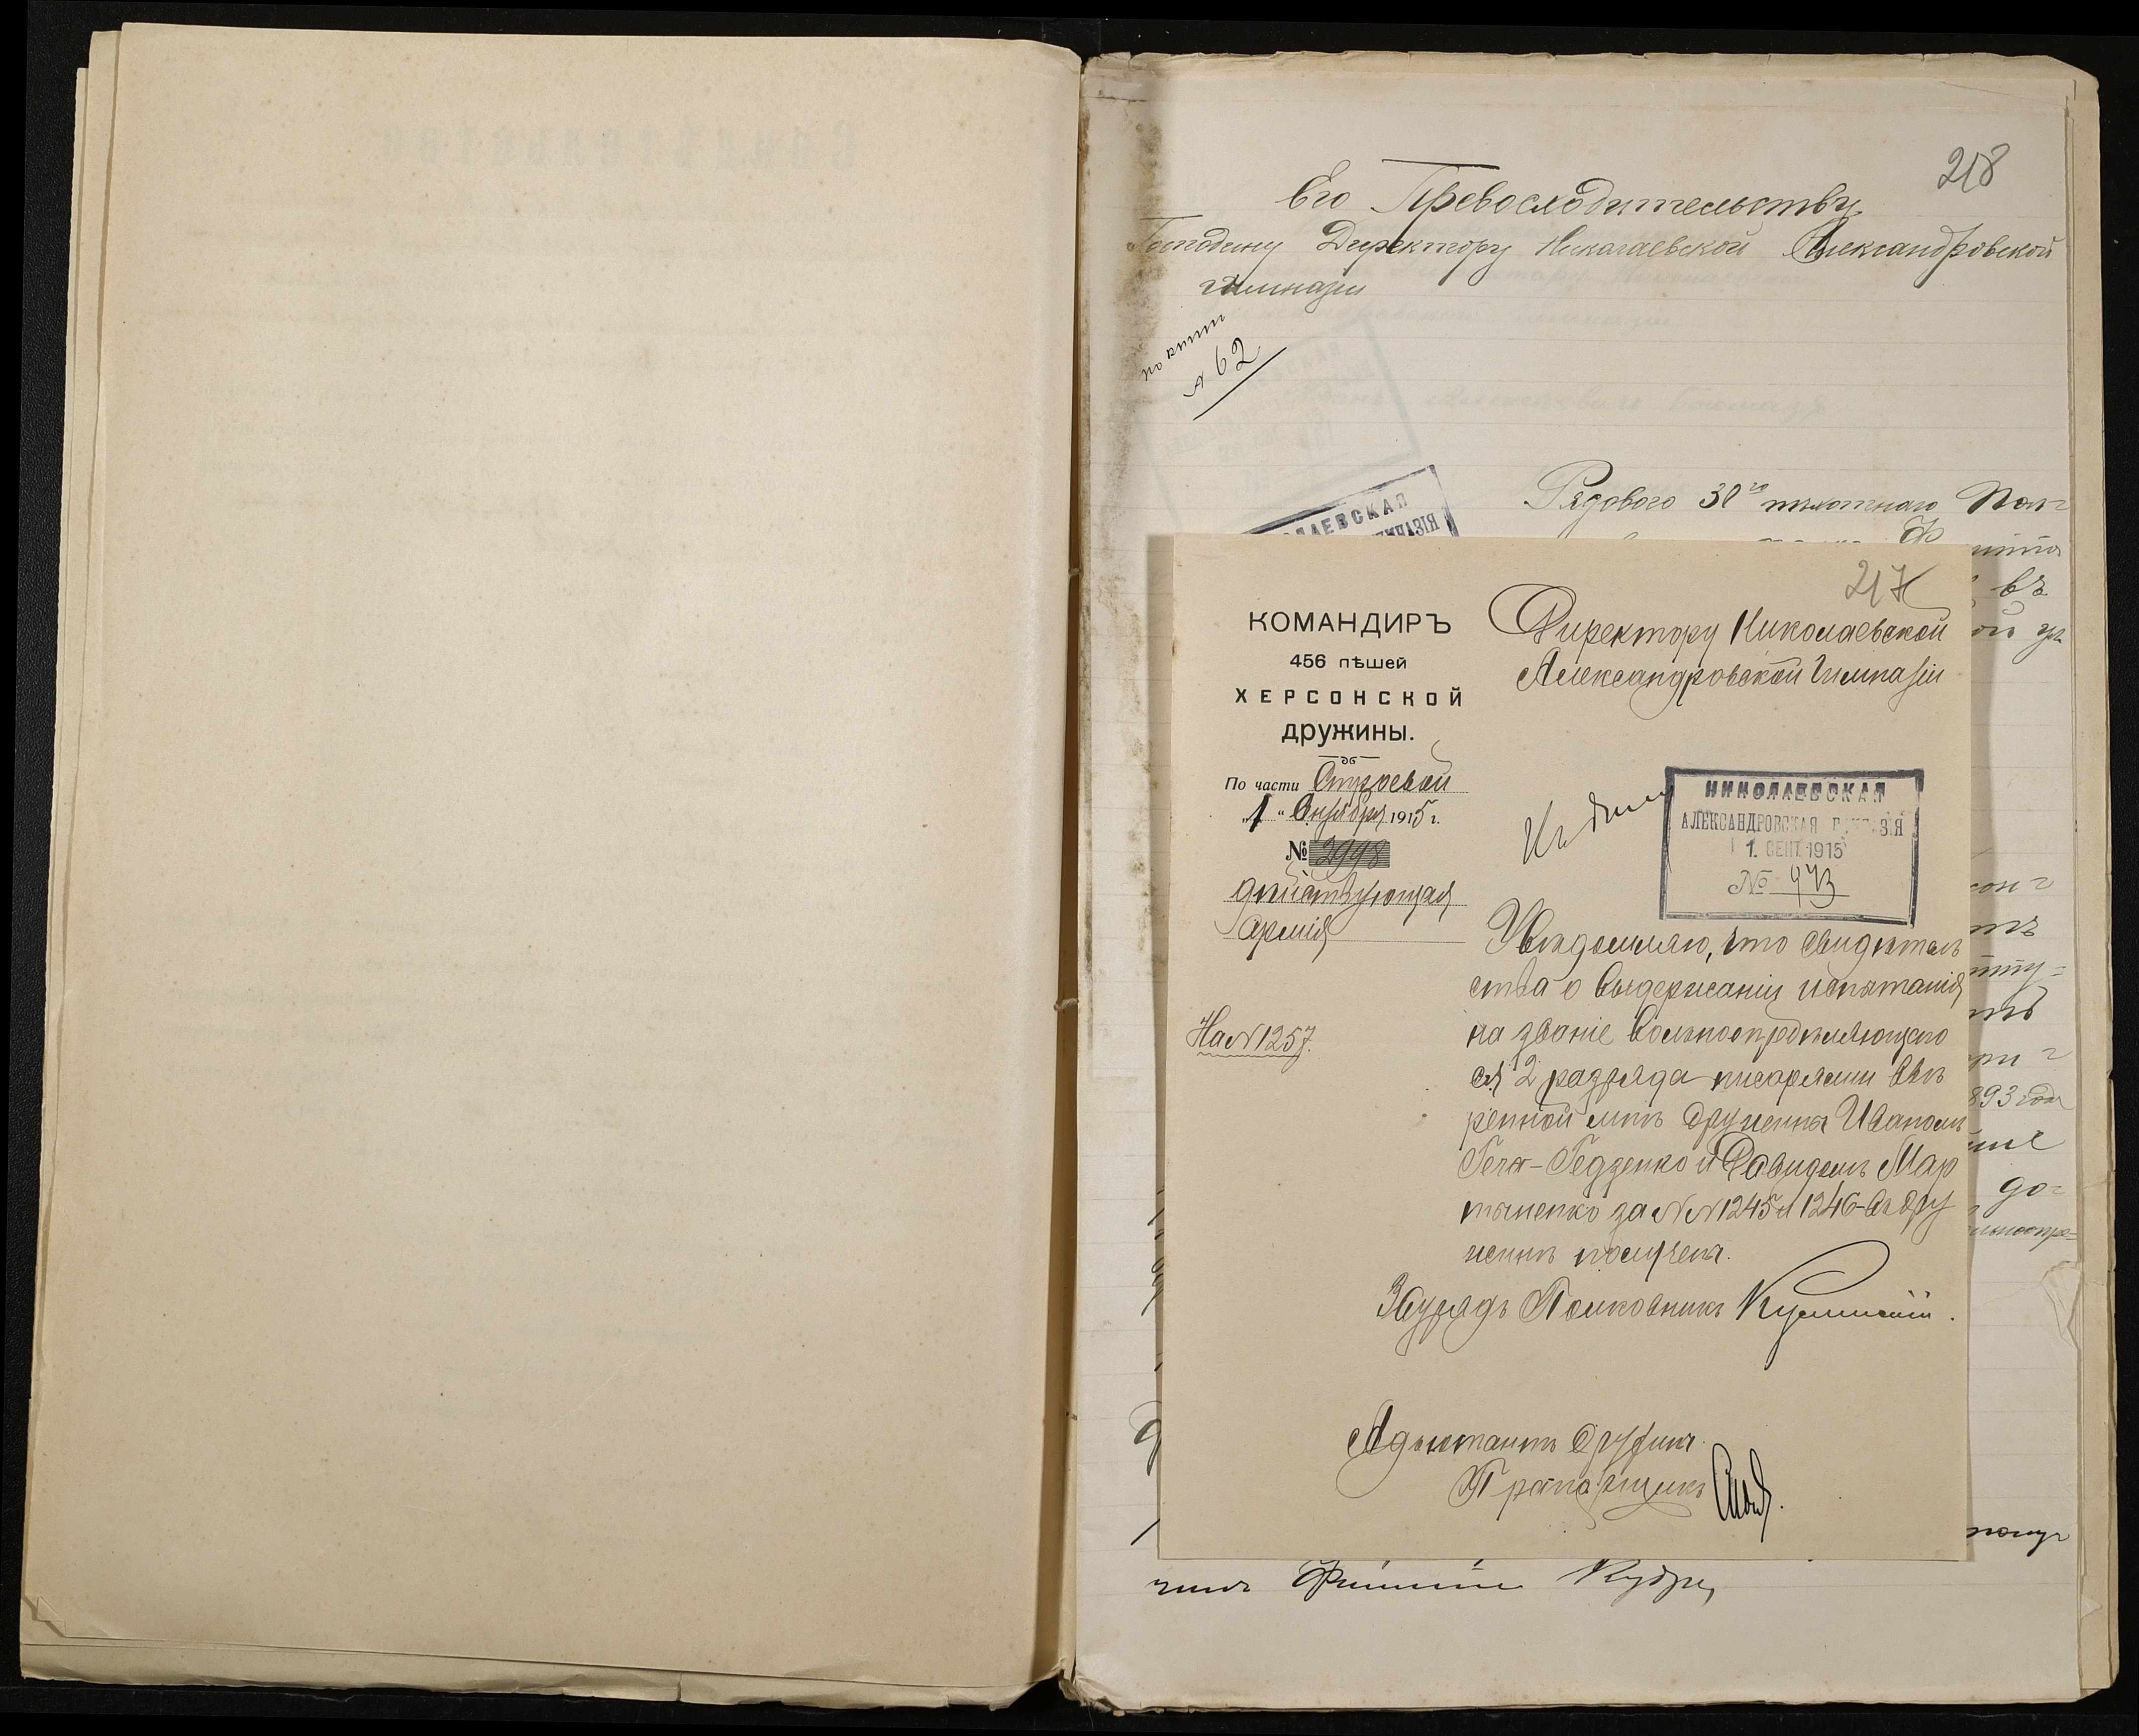 218
Его Превосходительству
Господину Директору Николаевской Александровской
гимназіи
по книги
№ 62
НИКОЛАЕВСКАЯ
ГИМНАЗІЯ
Рядового 38го пѣхотнаго
въ
217
КОМАНДИРЪ
456 пѣшей
ХЕРСОНСКОЙ
дружины.
По части Строевой
„1" Октября 1915 г.
№ 2998
дѣйствующая
армія
На № 1257.
Директору Николаевской
Александровской Гимназіи
Къ дѣлу
НИКОЛАЕВСКАЯ
АЛЕКСАНДРОВСКАЯ ГИМНАЗІЯ
1. СЕНТ 1915
№ 973
Увѣдомляю, что свидѣтель
ства о выдержаніи испытанія
на званіе вольноопредѣляющаго
ся 2 разряда писарями ввѣ
ренной мнѣ дружины Иваномъ
Гечъ-Гедзенко и Давидомъ Мар
тыненко за №№ 1245 и 1246 въ дру
жинѣ получены.
Зауряд Полковникъ
Адъютантъ дружины
Прапорщикъ
893 года
до=
Кудря